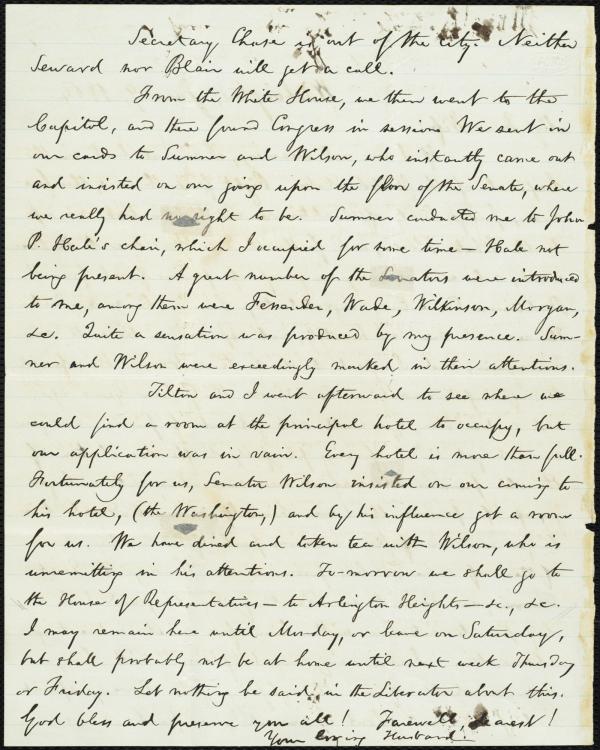 Secretary Chase is out of the city. Neither
Seward nor Blair will get a call.
From the White House, we then went to the
Capitol, and there found Congress in session. We sent in
our cards to Sumner and Wilson, who instantly came out
and insisted on our going upon the floor of the Senate, where
we really had no right to be. Sumner conducted me to John
P. Hale's chair, which I occupied for some time — Hale not
being present. A great number of the Senators were introduced
to me, among them were Fessenden, Wade, Wilkinson, Morgan,
&c. Quite a sensation was produced by my presence. Sum-
ner and Wilson were exceedingly marked in their attentions.
Tilton and I went afterward to see where we
could find a room at the principal hotel to occupy, but
our application was in vain. Every hotel is more than full.
Fortunately for us, Senator Wilson insisted on our coming to
his hotel, (the Washington,) and by his influence got a room
for us. We have dined and taken tea with Wilson, who is
unremitting in his attentions. To-morrow we shall go to
the House of Representatives — to Arlington Heights — &c., &c.
I may remain here until Monday, or leave on Saturday,
but shall probably not be at home until next week Thursday
or Friday. Let nothing be said in the Liberator about this.
God bless and preserve you all! Farewell, dearest!
Your loving Husband.